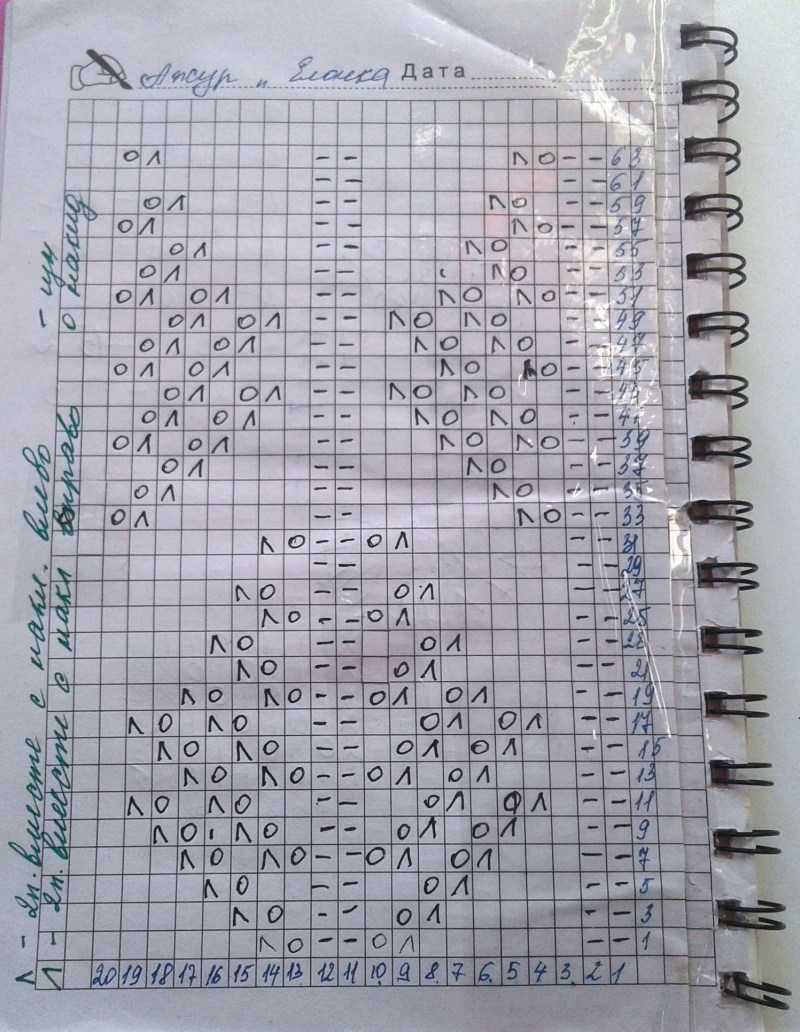 Ажур и Елочка Дата
O Λ - - Λ O - - 63
- - - - 61
O Λ - - Λ O - - 59
O Λ - - Λ O - - 57
O Λ - - Λ O - - 55
O Λ - - Λ O - - 53
O Λ O Λ - - Λ O Λ O - - 51
O Λ O Λ - - Λ O Λ O - - 49
O Λ O Λ - - Λ O Λ O - - 47
O Λ O Λ - - Λ O Λ O - - 45
O Λ O Λ - - Λ O Λ O - - 43
O Λ O Λ - - Λ O Λ O - - 41
O Λ O Λ - - Λ O Λ O - - 39
O Λ - - Λ O - - 37
O Λ - - Λ O - - 35
O Λ - - Λ O - - 33
Λ O - - O Λ - - 31
- - - - 29
Λ O - - O Λ - - 27
Λ O - - O Λ - - 25
Λ O - - O Λ - - 23
Λ O - - O Λ - - 21
Λ O Λ O - - O Λ O Λ - - 19
Λ O Λ O - - O Λ O Λ - - 17
Λ O Λ O - - O Λ O Λ - - 15
Λ O Λ O - - O Λ O Λ - - 13
Λ O Λ O - - O Λ O Λ - - 11
Λ O Λ O - - O Λ O Λ - - 9
Λ O Λ O - - O Λ O Λ - - 7
Λ O - - O Λ - - 5
Λ O - - O Λ - - 3
Λ O - - O Λ - - 1
20 19 18 17 16 15 14 13 12 11 10 9 8 7 6 5 4 3 2 1
Λ - 2п. вместе с накл. влево -
Λ - 2п. вместе с накл вправо O накид